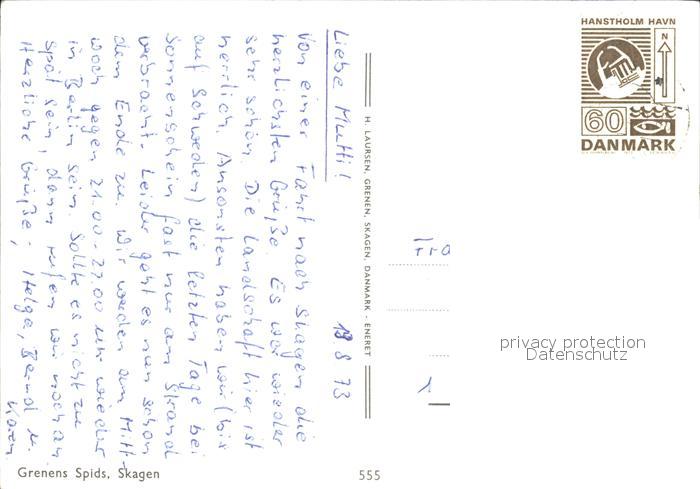 HANSTHOLM HAVN
N
60
DANMARK
13 8 73
Liebe Mutti!
Von einer Fahrt nach Skagen die
herzlichsten Grüße. Es war wieder
sehr schön. Die Landschaft hier ist
herrlich. Ansonsten haben wir (bis
auf Schweden) die letzten Tage bei
Sonnenschein fast nur am Strand
verbracht. Leider geht es nun schon
dem Ende zu. Wir werden am Mitt-
woch gegen 21.00-22.00 Uhr wieder
in Berlin sein. Sollte es nicht zu
spät sein, dann rufen wir noch an.
Herzliche Grüße, Helga, Bernd u.
H. LAURSEN, GRENEN, SKAGEN, DANMARK - ENERET
Fra
1
privacy protection
Datenschutz
Grenens Spids, Skagen
555